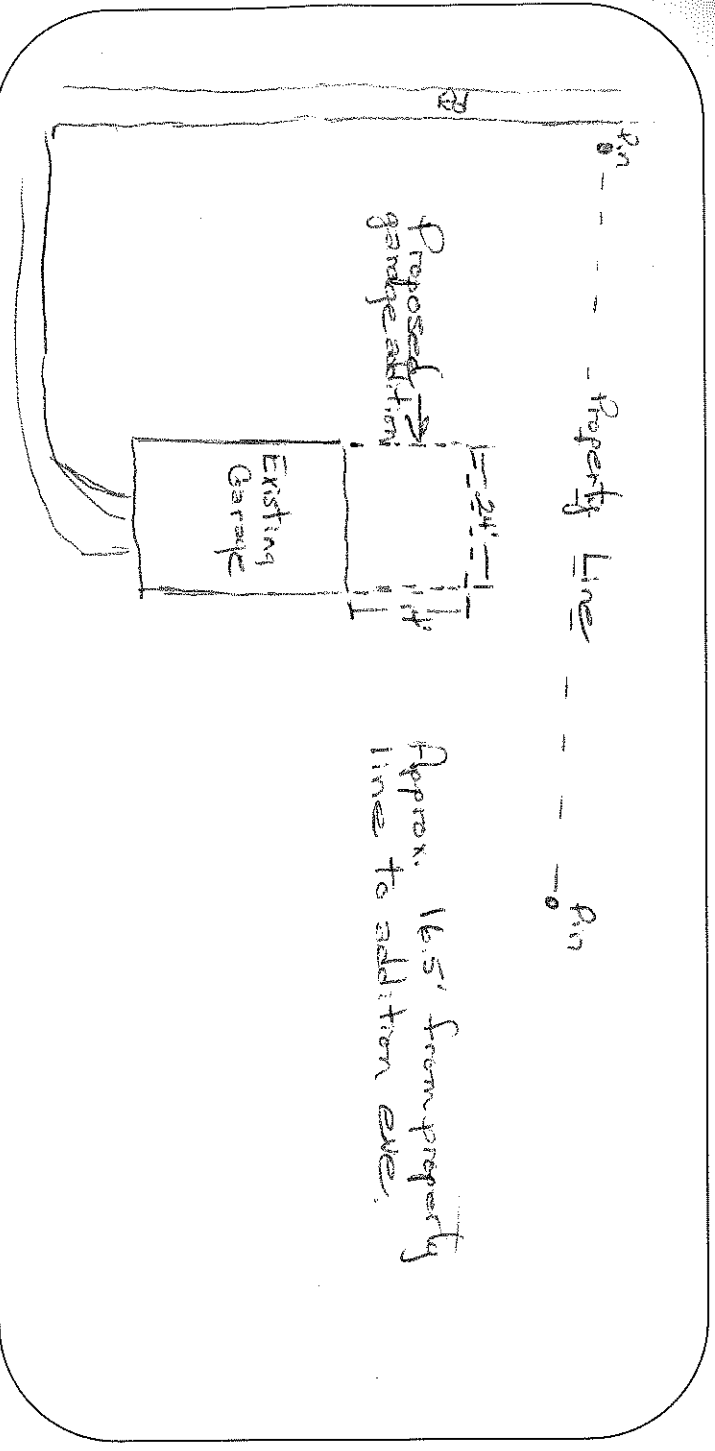 Pin
Property Line
Pin
Rd
Proposed
garage addition
24'
14'
Existing
Garage
Approx. 16.5' from property
line to addition eve.